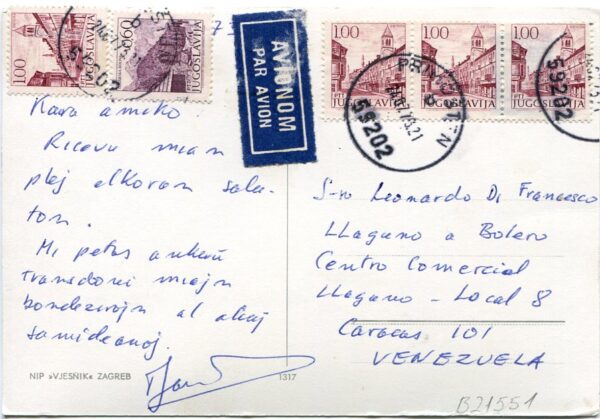 1.00
JUGOSLAVIJA
0.60
JUGOSLAVIJA
59202
AVIONOM
PAR AVION
1.00
JUGOSLAVIJA
1.00
JUGOSLAVIJA
1.00
JUGOSLAVIJA
PRIMOŠTEN
59202
59202
Kara amiko!
Ricevu mian
plej elkoran salu-
ton.
Mi petas ankaŭ
transdoni miajn
bondezirojn al aliaj
samideanoj.
NIP »VJESNIK« ZAGREB
1317
S-ro Leonardo Di Francesco
LLaguno a Bolero
Centro Comercial
LLaguno - Local 8
Caracas 101
VENEZUELA
B21551